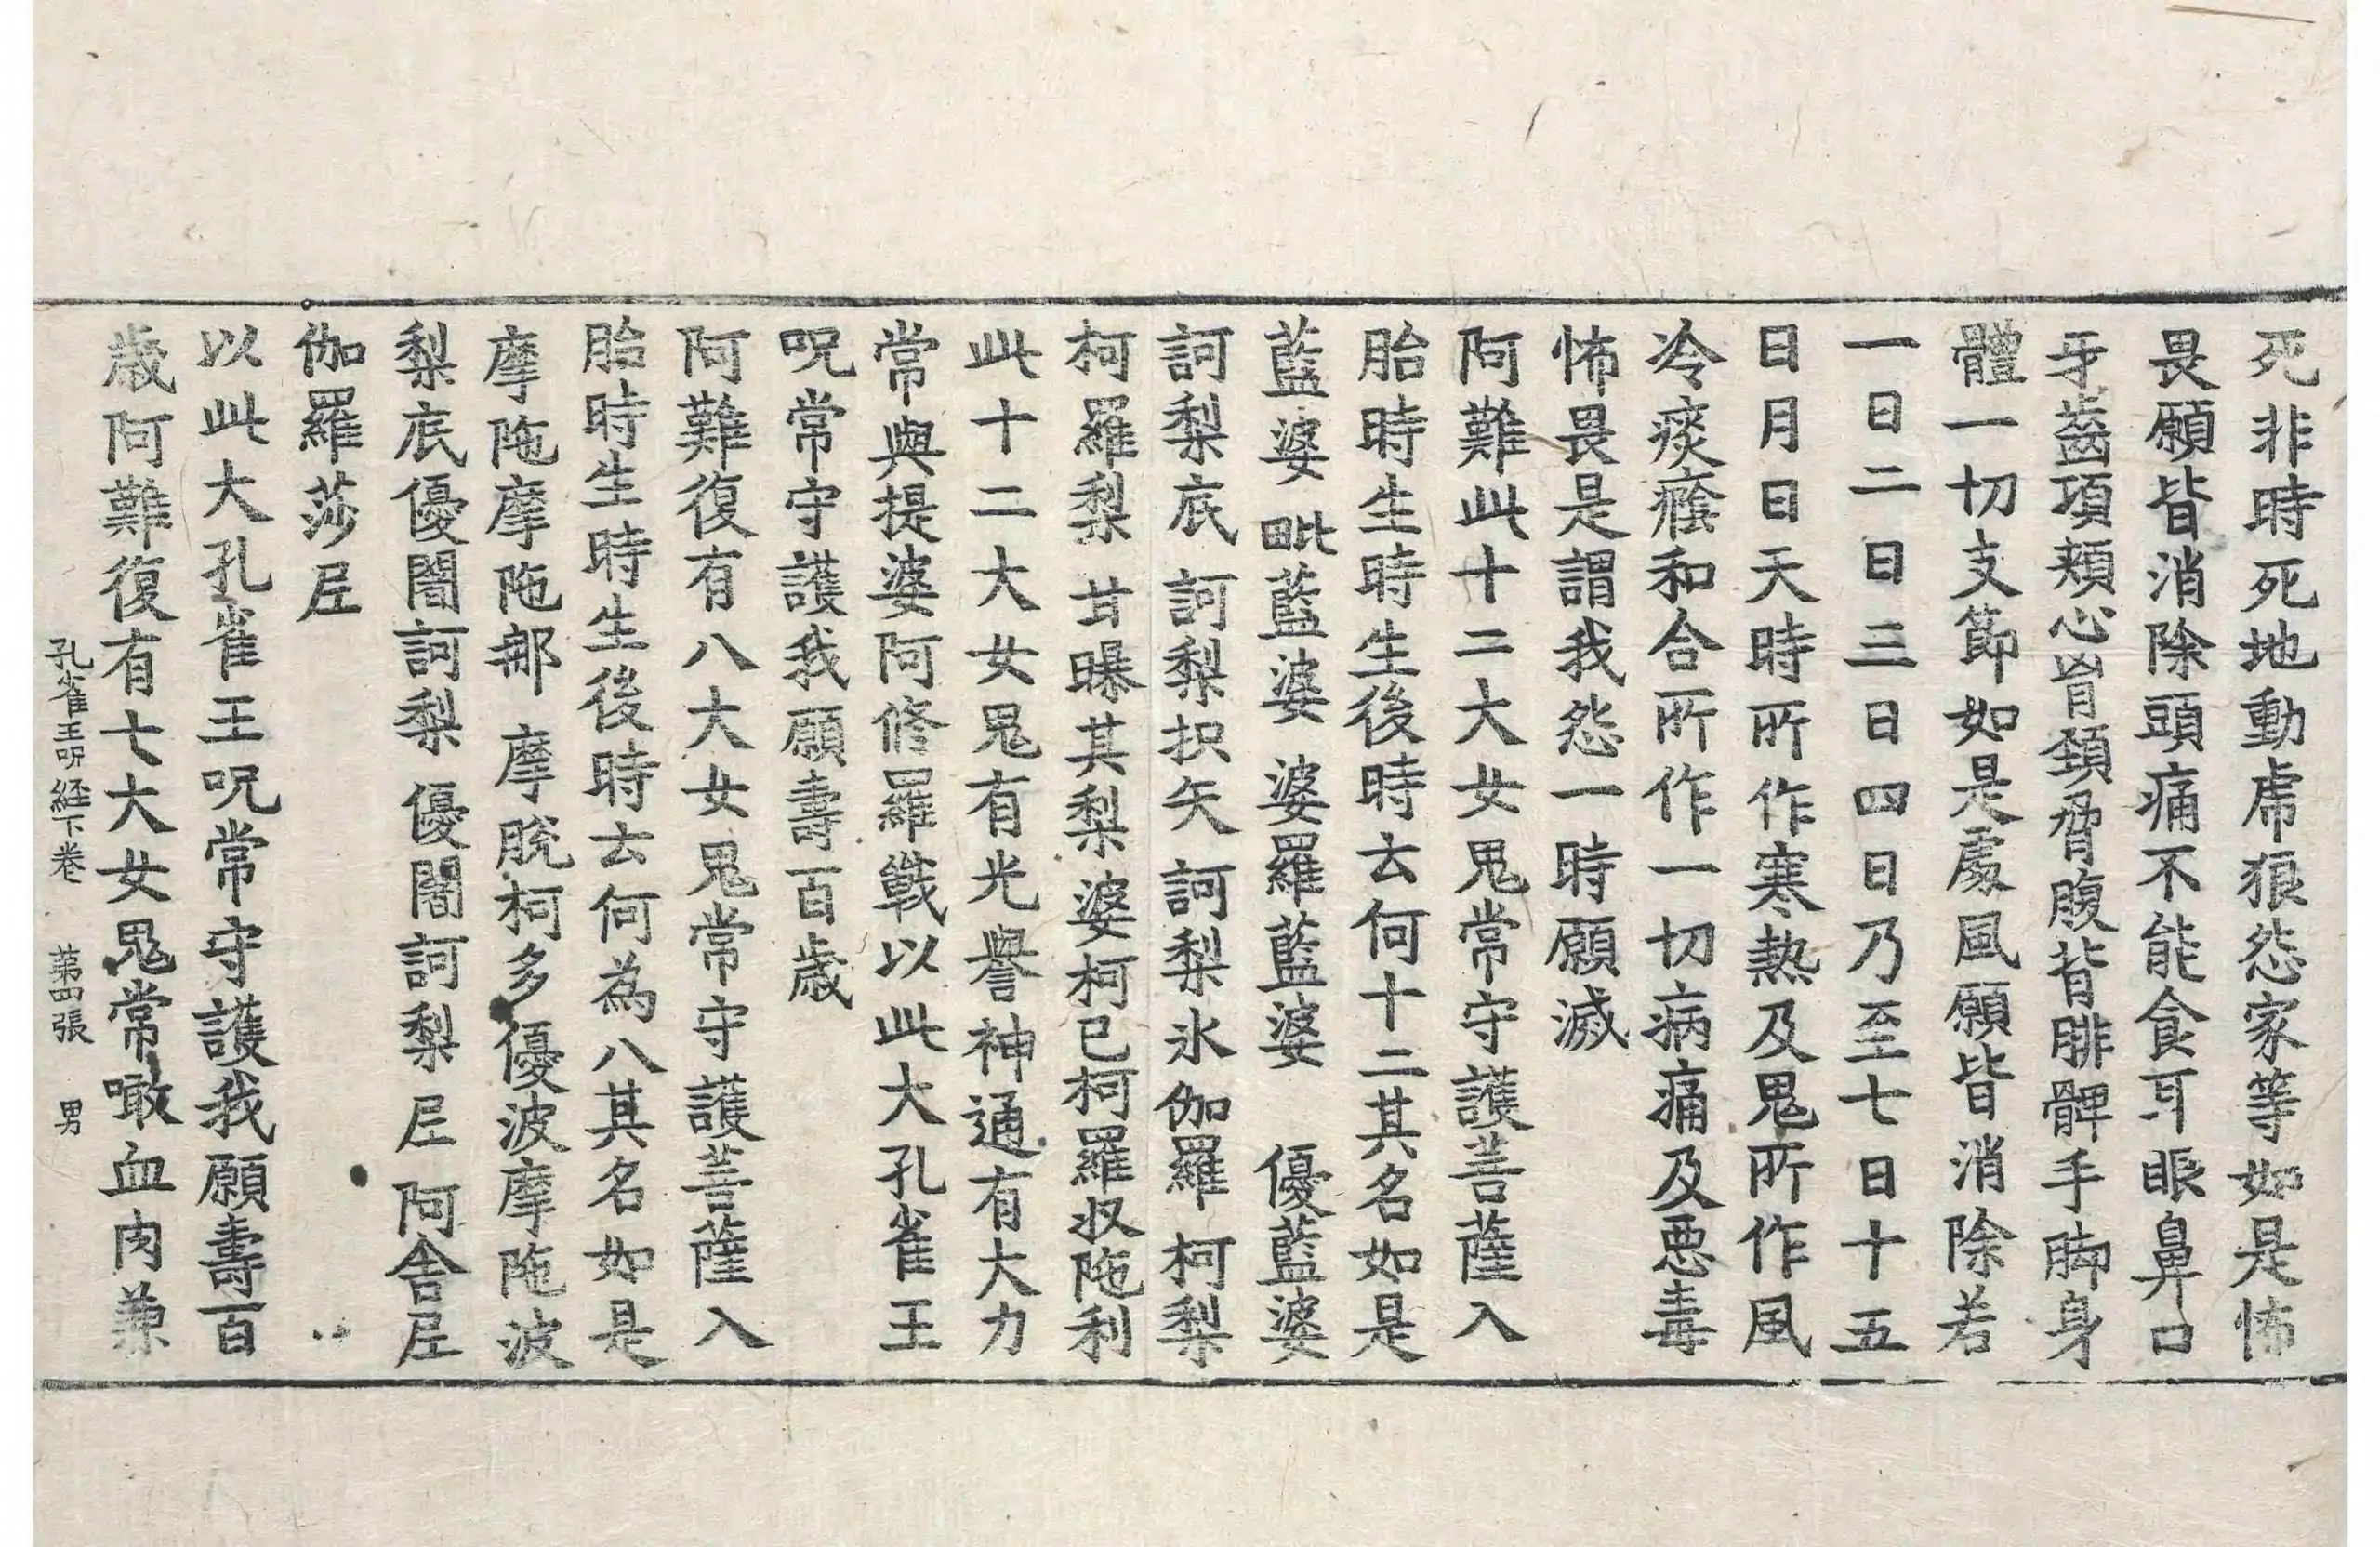 死非時死地動虎狼怨家等如是怖
畏願皆消除頭痛不能食耳眼鼻口
牙齒項頰心𦙄頷脅腹背腓髀手腳身
體一切支節如是處風願皆消除若
一日二日三日四日乃至七日十五
日月日天時所作寒熱及鬼所作風
冷痰癊和合所作一切病痛及惡毒
怖畏是謂我怨一時願滅
阿難此十二大女鬼常守護菩薩入
胎時生時生後時去何十二其名如是
藍婆 毗藍婆 婆羅藍婆 優藍婆
訶梨底 訶梨抧矢 訶梨氷伽羅 柯梨
柯羅梨 甘曝其梨婆柯已柯羅奴陁利
此十二大女鬼有光譽神通有大力
常與提婆阿修羅戰以此大孔雀王
呪常守護我願壽百歲
阿難復有八大女鬼常守護菩薩入
胎時生時生後時去何為八其名如是
摩陁摩陁那 摩脫柯多優波摩陁波
梨底優闍訶梨 優闍訶梨𡰱 阿舍𡰱
伽羅莎𡰱
以此大孔雀王呪常守護我願壽百
歲阿難復有七大女鬼常噉血肉兼
孔雀王呪経下卷 第四張 男